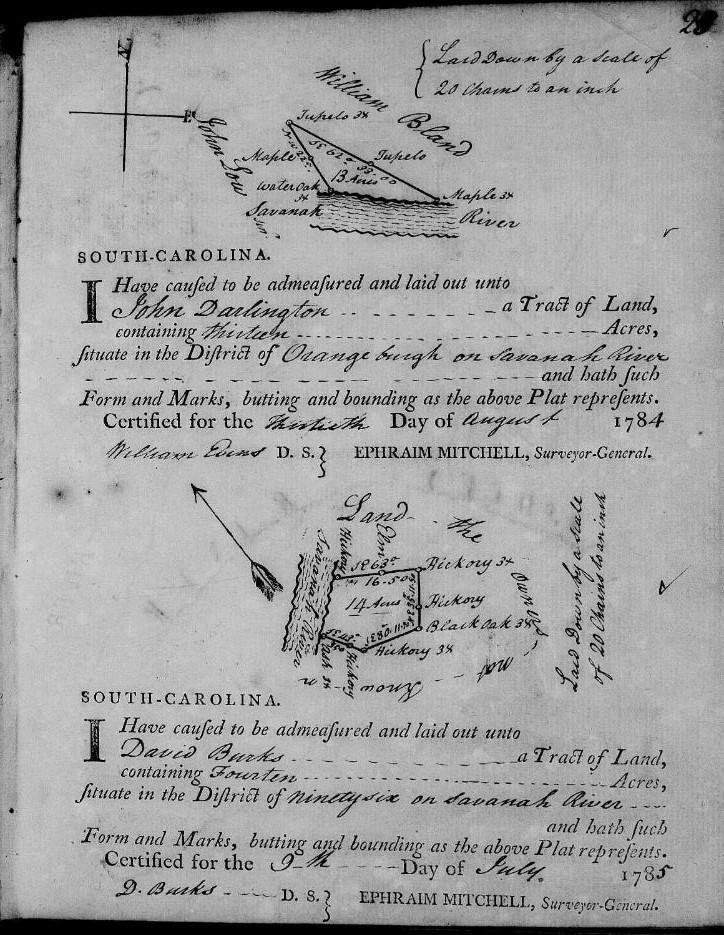 Laid Down by a Scale of
20 Chains to an inch
William Bland
N
E
John Low
Tupelo 3x
Maple
Tupelo
13 Acres
33-00
Water Oak
3x
Maple 3x
Savanah
River
SOUTH-CAROLINA.
I Have cauſed to be admeaſured and laid out unto
John Darlington a Tract of Land,
containing thirteen Acres,
ſituate in the Diſtrict of Orangeburgh on Savanah River
and hath ſuch
Form and Marks, butting and bounding as the above Plat repreſents.
Certified for the thirtieth Day of August 1784
William Evins D. S. } EPHRAIM MITCHELL, Surveyor-General.
Land the
Owner
not Known
Laid Down by a Scale
of 20 Chains to an inch
Savanah River
Hickory
Elm
Hickory 3x
16-50
14 Acres
Hickory
Black Oak 3x
Hickory 3x
Ash 3x
Hickory
SOUTH-CAROLINA.
I Have cauſed to be admeaſured and laid out unto
David Burks a Tract of Land,
containing Fourten Acres,
ſituate in the Diſtrict of ninety six on Savanah River
and hath ſuch
Form and Marks, butting and bounding as the above Plat repreſents.
Certified for the 9th Day of July. 1785
D. Burks D. S. } EPHRAIM MITCHELL, Surveyor-General.